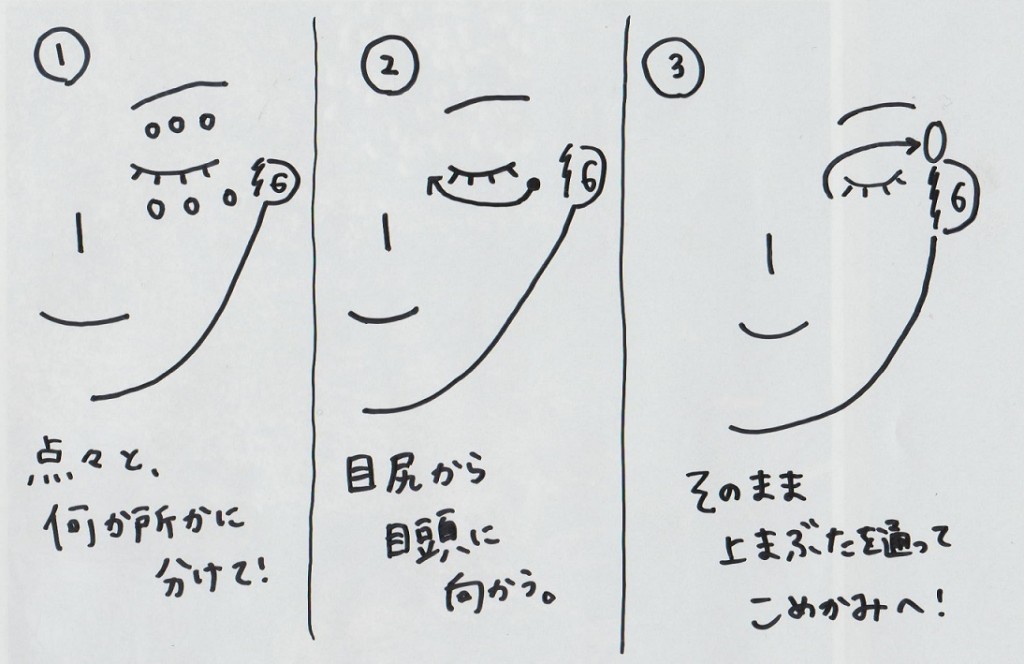 ①
点々と、
何か所かに
分けて!
②
目尻から
目頭に
向かう。
③
そのまま
上まぶたを通って
こめかみへ!